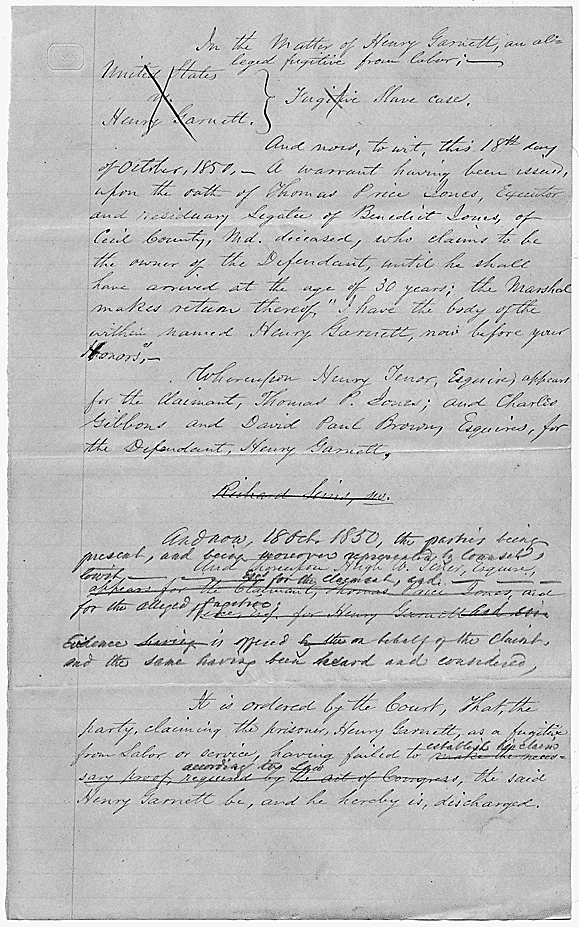 In the Matter of Henry Garnett, an al=
leged fugitive from labor;—
United States
vs.
Henry Garnett. } Fugitive Slave case.
And now, to wit, this 18th day
of October, 1850,— A warrant having been issued,
upon the oath of Thomas Price Jones, Executor
and residuary Legatee of Benedict Jones, of
Cecil County, Md. deceased, who claims to be
the owner of the Defendant, until he shall
have arrived at the age of 30 years; the Marshal
makes return thereof, "I have the body of the
within named Henry Garnett, now before your
Honors",—
Whereupon Henry Tenor, Esquire, appears
for the Claimant, Thomas P. Jones; and Charles
Gibbons and David Paul Brown, Esquires, for
the Defendant, Henry Garnett.
Richard
And now, 18 Oct. 1850, the parties being
present, and being moreover represented by Counsel,
to wit,— And thereupon Hugh W. Esquire,
for the claimant, and
appears for the Claimant, Thomas Price Jones, and
for the alleged fugitive; for Henry Garnett and
Evidence having is offered by the on behalf of the Claimant,
and the same having been heard and considered,
It is ordered by the Court, That, the
party, claiming the prisoner, Henry Garnett, as a fugitive
from Labor or service, having failed to establish his claim make the neces=
according to Law
sary proof, required by the act of Congress, the said
Henry Garnett be, and he hereby is, discharged.